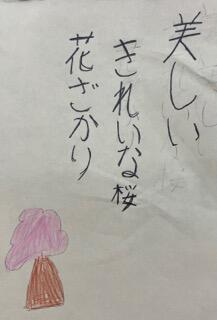 美しい
きれいな桜
花ざかり